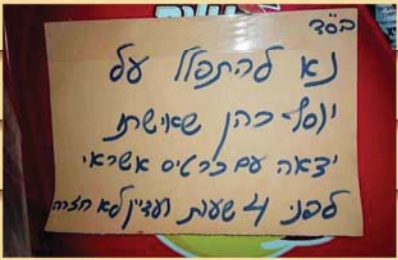 בס"ד
נא להתפלל על
יוסף כהן שאישתו
יצאה עם כרטיס אשראי
לפני 4 שעות ועדיין לא חזרה